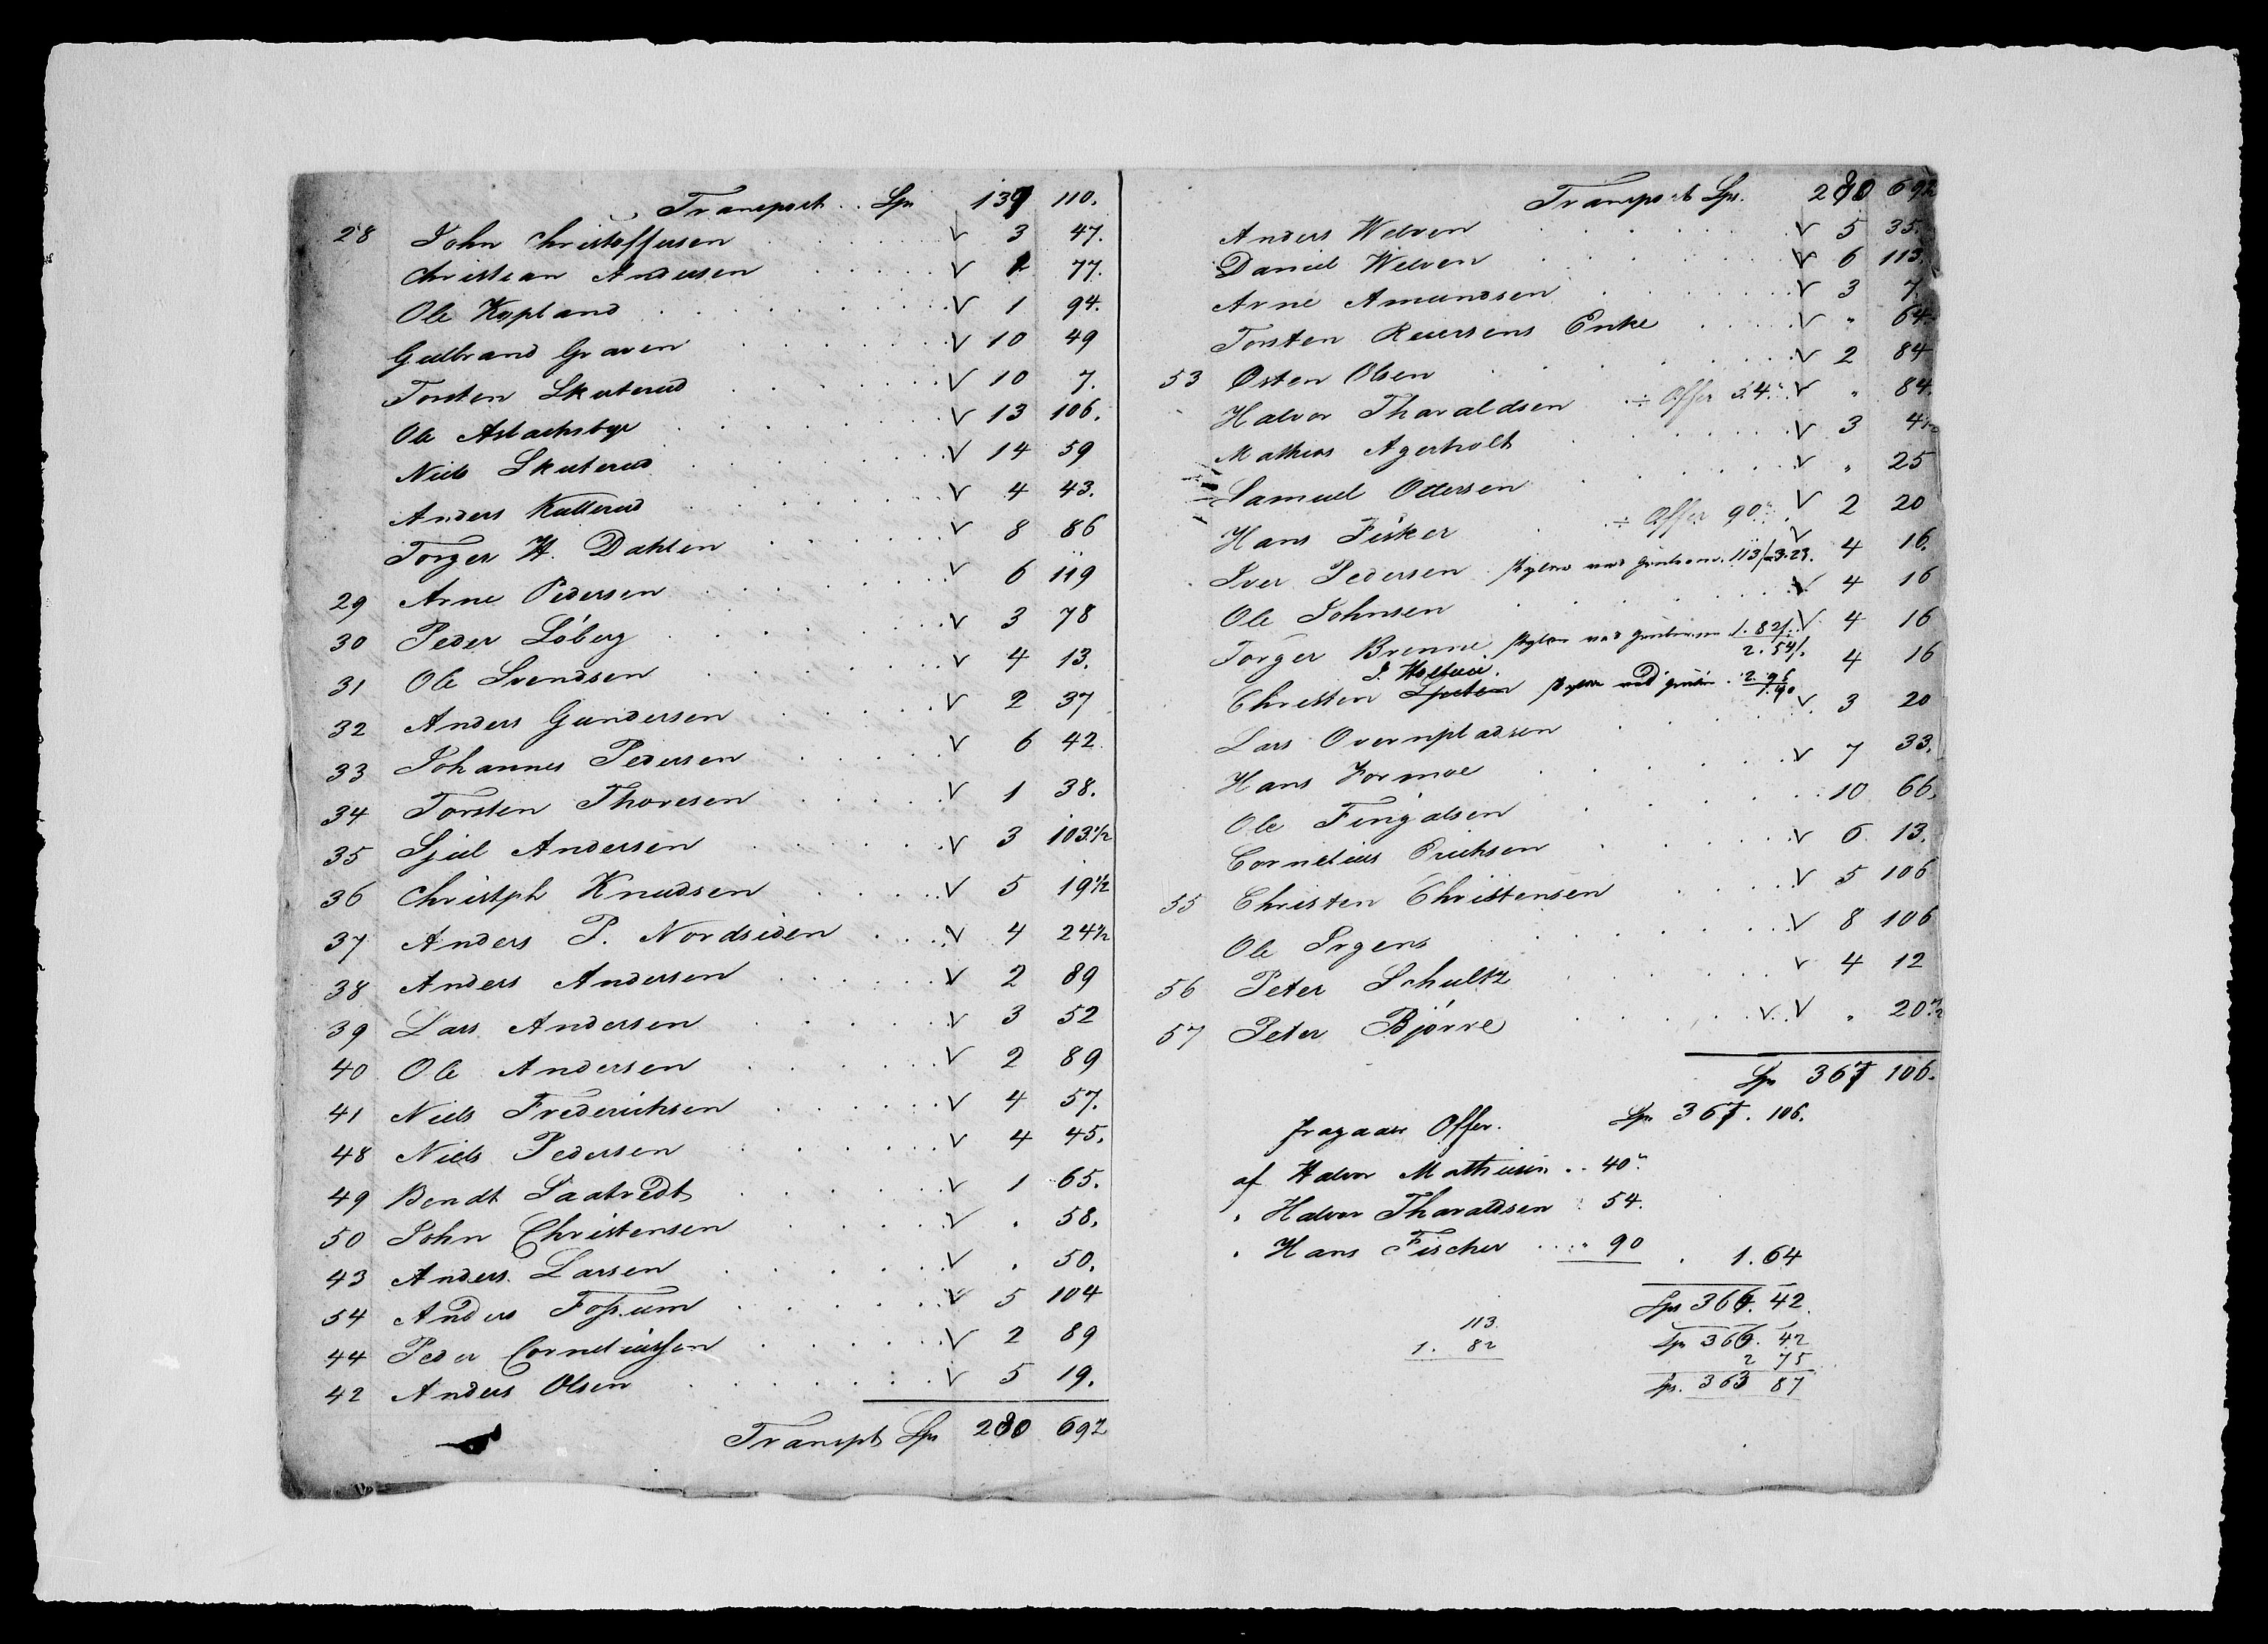 Transport . . Sp 139 110.
28 John Christoffersen V 3 47.
Christian Andersen V 2 77.
Ole Kopland V 1 94.
Gulbrand Graven V 10 49
Torsten Skuterud V 10 7.
Ole Aslachsbye V 13 106.
Niels Skuterud V 14 59
Anders Kutterud V 4 43.
Torger H. Dahlen V 8 86
29 Arne Pedersen V 6 119
30 Peder Löberg V 3 78
31 Ole Svendsen V 4 13.
32 Anders Gundersen V 2 37
33 Johannes Pedersen V 6 42
34 Torsten Thoresen V 1 38.
35 Sjul Andersen V 3 103 1/2
36 Christph Knudsen V 5 19 1/2
37 Anders P. Nordsiden V 4 24 1/2
38 Anders Andersen V 2 89
39 Lars Andersen V 3 52
40 Ole Andersen V 2 89
41 Niels Frederichsen V 4 57.
48 Niels Pedersen V 4 45.
49 Bendt Saatvedt V 1 65.
50 John Christensen V . 58.
43 Anders Larsen V . 50.
54 Anders Fossum V 5 104
44 Peder Corneliussen V 2 89
42 Anders Olsen V 5 19.
Transpt Sp 280 69 1/2
Transport Sp. 280 69 1/2
Anders Welven V 5 35.
Daniel Welven V 6 113.
Arne Amundsen V 3 7.
Torsten Reiersens Enke V " 64.
53 Osten Olsen V 2 84
Halvor Tharaldsen ÷ Offer 54 V " 84.
Mathias Agerholt V 3 4 1/2
Samuel Ottersen V " 25
Hans Fisker ÷ Offer 90 V 2 20
Iver Pedersen 113/ 3.23. V 4 16.
Ole Johnsen V 4 16
Torger Brenne 1. 82/. V 4 16
2. 54/.
Christen 2. 96 4 16
1. 40
Lars Overnpladsen V 3 20
Hans Formoe V 7 33.
Ole Fingalsen 10 66.
Cornelius Erichsen V 6 13.
55 Christen Christensen V 5 106
Ole Irgens V 8 106
56 Peter Schultz V 4 12
57 Peter Bjørre V. V " 20 1/2
Sp 367 106.
fragaaer Offer. Sp 367. 106.
af Halvor Mathiesen . . 40
" Halvor Tharaldsen 54.
" Hans Fischer . . . 90 " 1. 64
Sp 366. 42.
113. Sp 366. 42
1. 82 2 75
Sp. 363 87